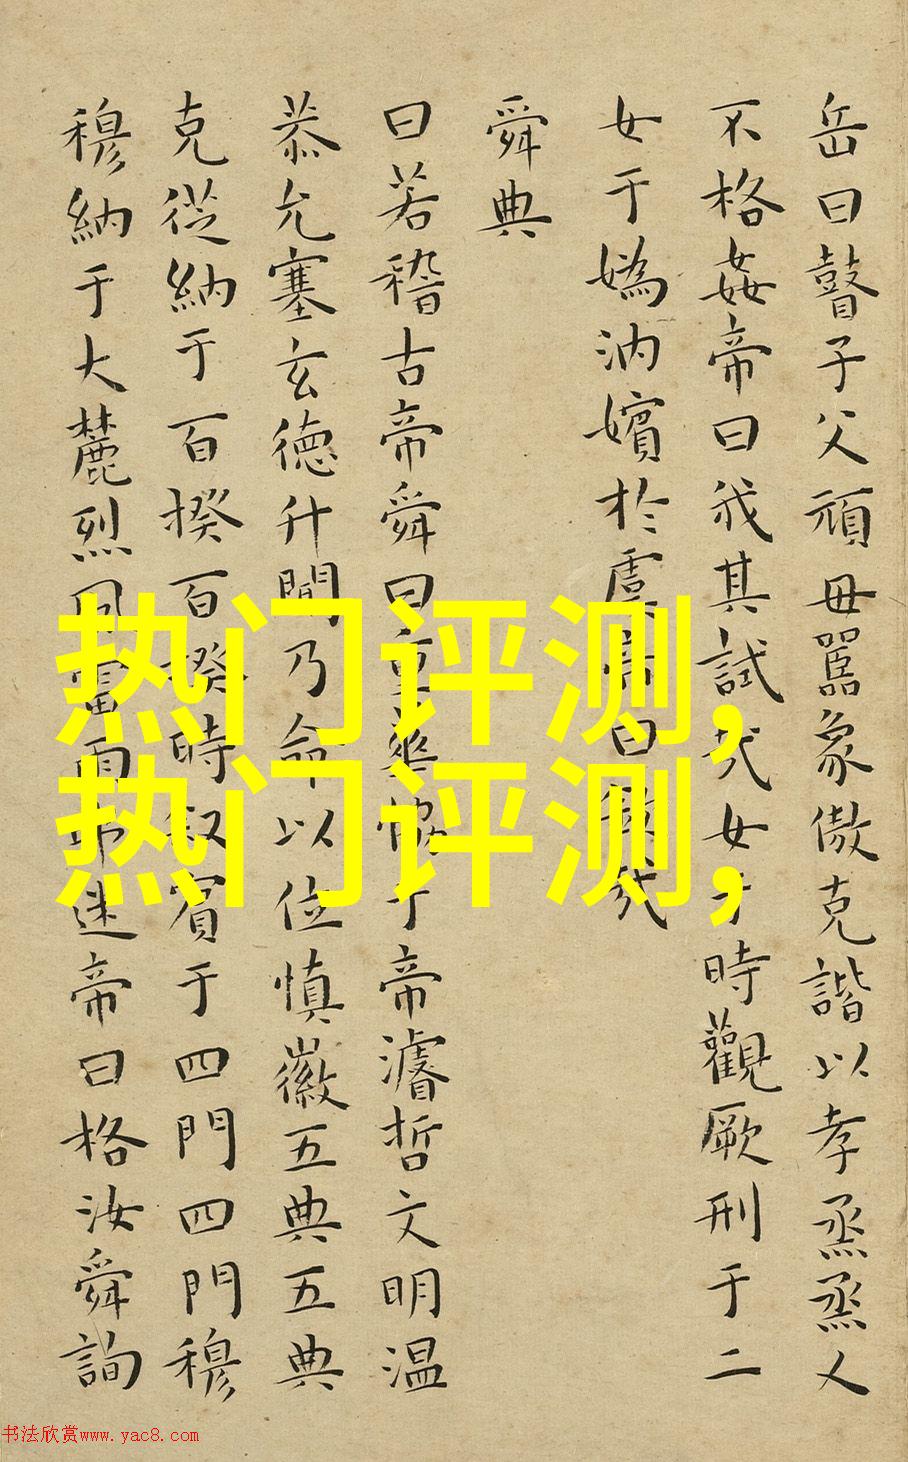 岳曰瞽子父頑母嚚象傲克諧以孝烝烝乂
不格姦帝曰我其試哉女于時觀厥刑于二
女于媯汭嬪於虞帝曰欽哉
舜典
曰若稽古帝舜曰重華協于帝濬哲文明温
恭允塞玄徳升聞乃命以位慎徽五典五典
克從納于百揆百揆時叙賓于四門四門穆
穆納于大麓烈風雷雨弗迷帝曰格汝舜詢
热门评测,
热门评测,
书法欣赏www.yac8.com